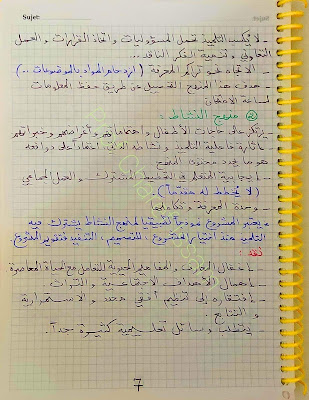 Sujet:
- لا يكسب التلميذ تحمل المسؤوليات واتخاذ القرارات والعمل
التعاوني وتنمية الفكر الناقد...
- الاتجاه نحو تراكم المعرفة (ازدحام المواد بالموضوعات ..)
- هدف هذا المنهج التحصيل عن طريق حفظ المعلومات
لساعة الامتحان
② منهج النشاط:
- يرتكز على حاجات الأطفال واهتماماتهم وأغراضهم وخبراتهم
- إثارة فاعلية التلميذ ونشاطه الذاتي اعتمادا على دوافعه
هو ما يحدد محتوى المنهج
- إيجابية المتعلم في التخطيط المشترك والعمل الجماعي
(لا يخطط له مقدما)
- وحدة المعرفة وتكاملها
* يعتبر المشروع نموذجا تطبيقيا لمنهج النشاط يشترك فيه
التلميذ عند اختيار المشروع، التصميم، التنفيذ فتقويم المشروع.
نقد:
- إغفال المعارف والمفاهيم الحيوية للتعامل مع الحياة المعاصرة
- إهمال الأهداف الاجتماعية والتراث
- افتقاره إلى تنظيم أفقي محدد والاستمرارية
و التتابع.
- يتطلب وسائل تعليمية كثيرة جدا.
7